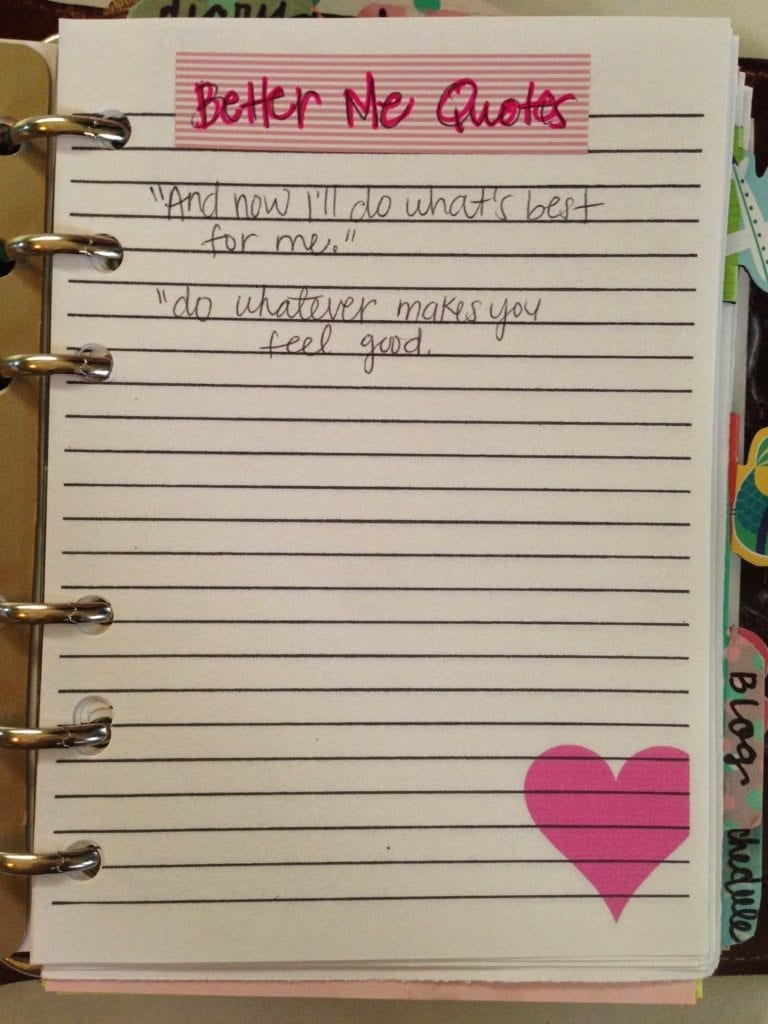 diary
Better Me Quotes
"And now I'll do what's best
for me."
"do whatever makes you
feel good.
Blog
hedule